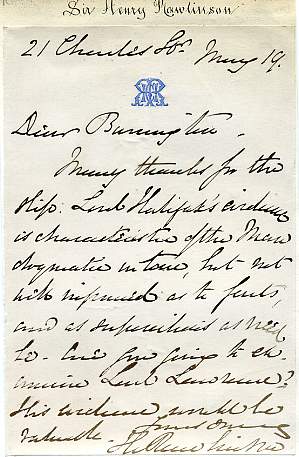 Sir Henry Rawlinson
21 Charles St. May 19.
Dear Burrington.
Many thanks for the
slip. Lord Halifax's evidence
is characteristic of the Man
dogmatic in tone, but not
well informed as to facts,
and as supercilious as need
be. Are you going to ex-
amine Lord Lawrence?
His evidence would be
valuable.
H C Rawlinson